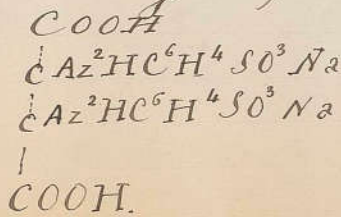 COOH
C Az²HC⁶H⁴SO³Na
C Az²HC⁶H⁴SO³Na
COOH.